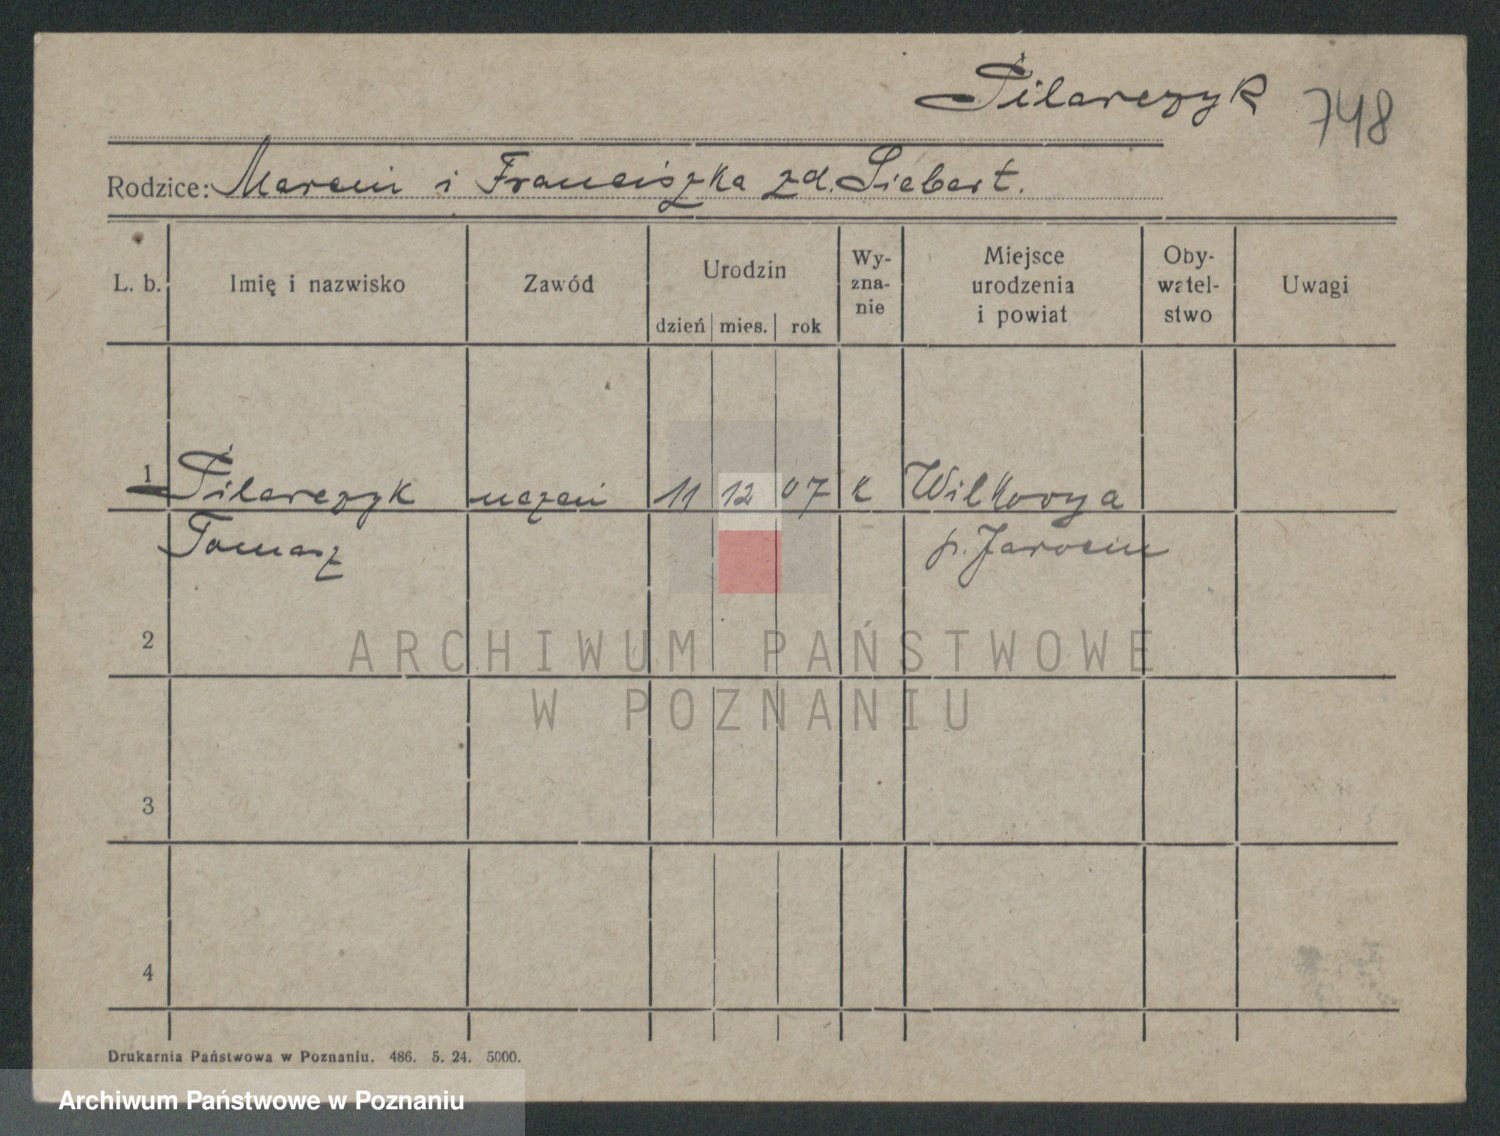 Pilarczyk 748
Rodzice: Marcin i Franciszka zd. Siebert.
L. b. Imię i nazwisko Zawód Urodzin dzień mies. rok Wy-zna-nie Miejsce urodzenia i powiat Oby-watel-stwo Uwagi
1 Pilarczyk uczeń 11 12 07 k Wilkowya
Tomasz p. Jarocin
2
ARCHIWUM PAŃSTWOWE
W POZNANIU
3
4
Drukarnia Państwowa w Poznaniu. 486. 5. 24. 5000.
Archiwum Państwowe w Poznaniu